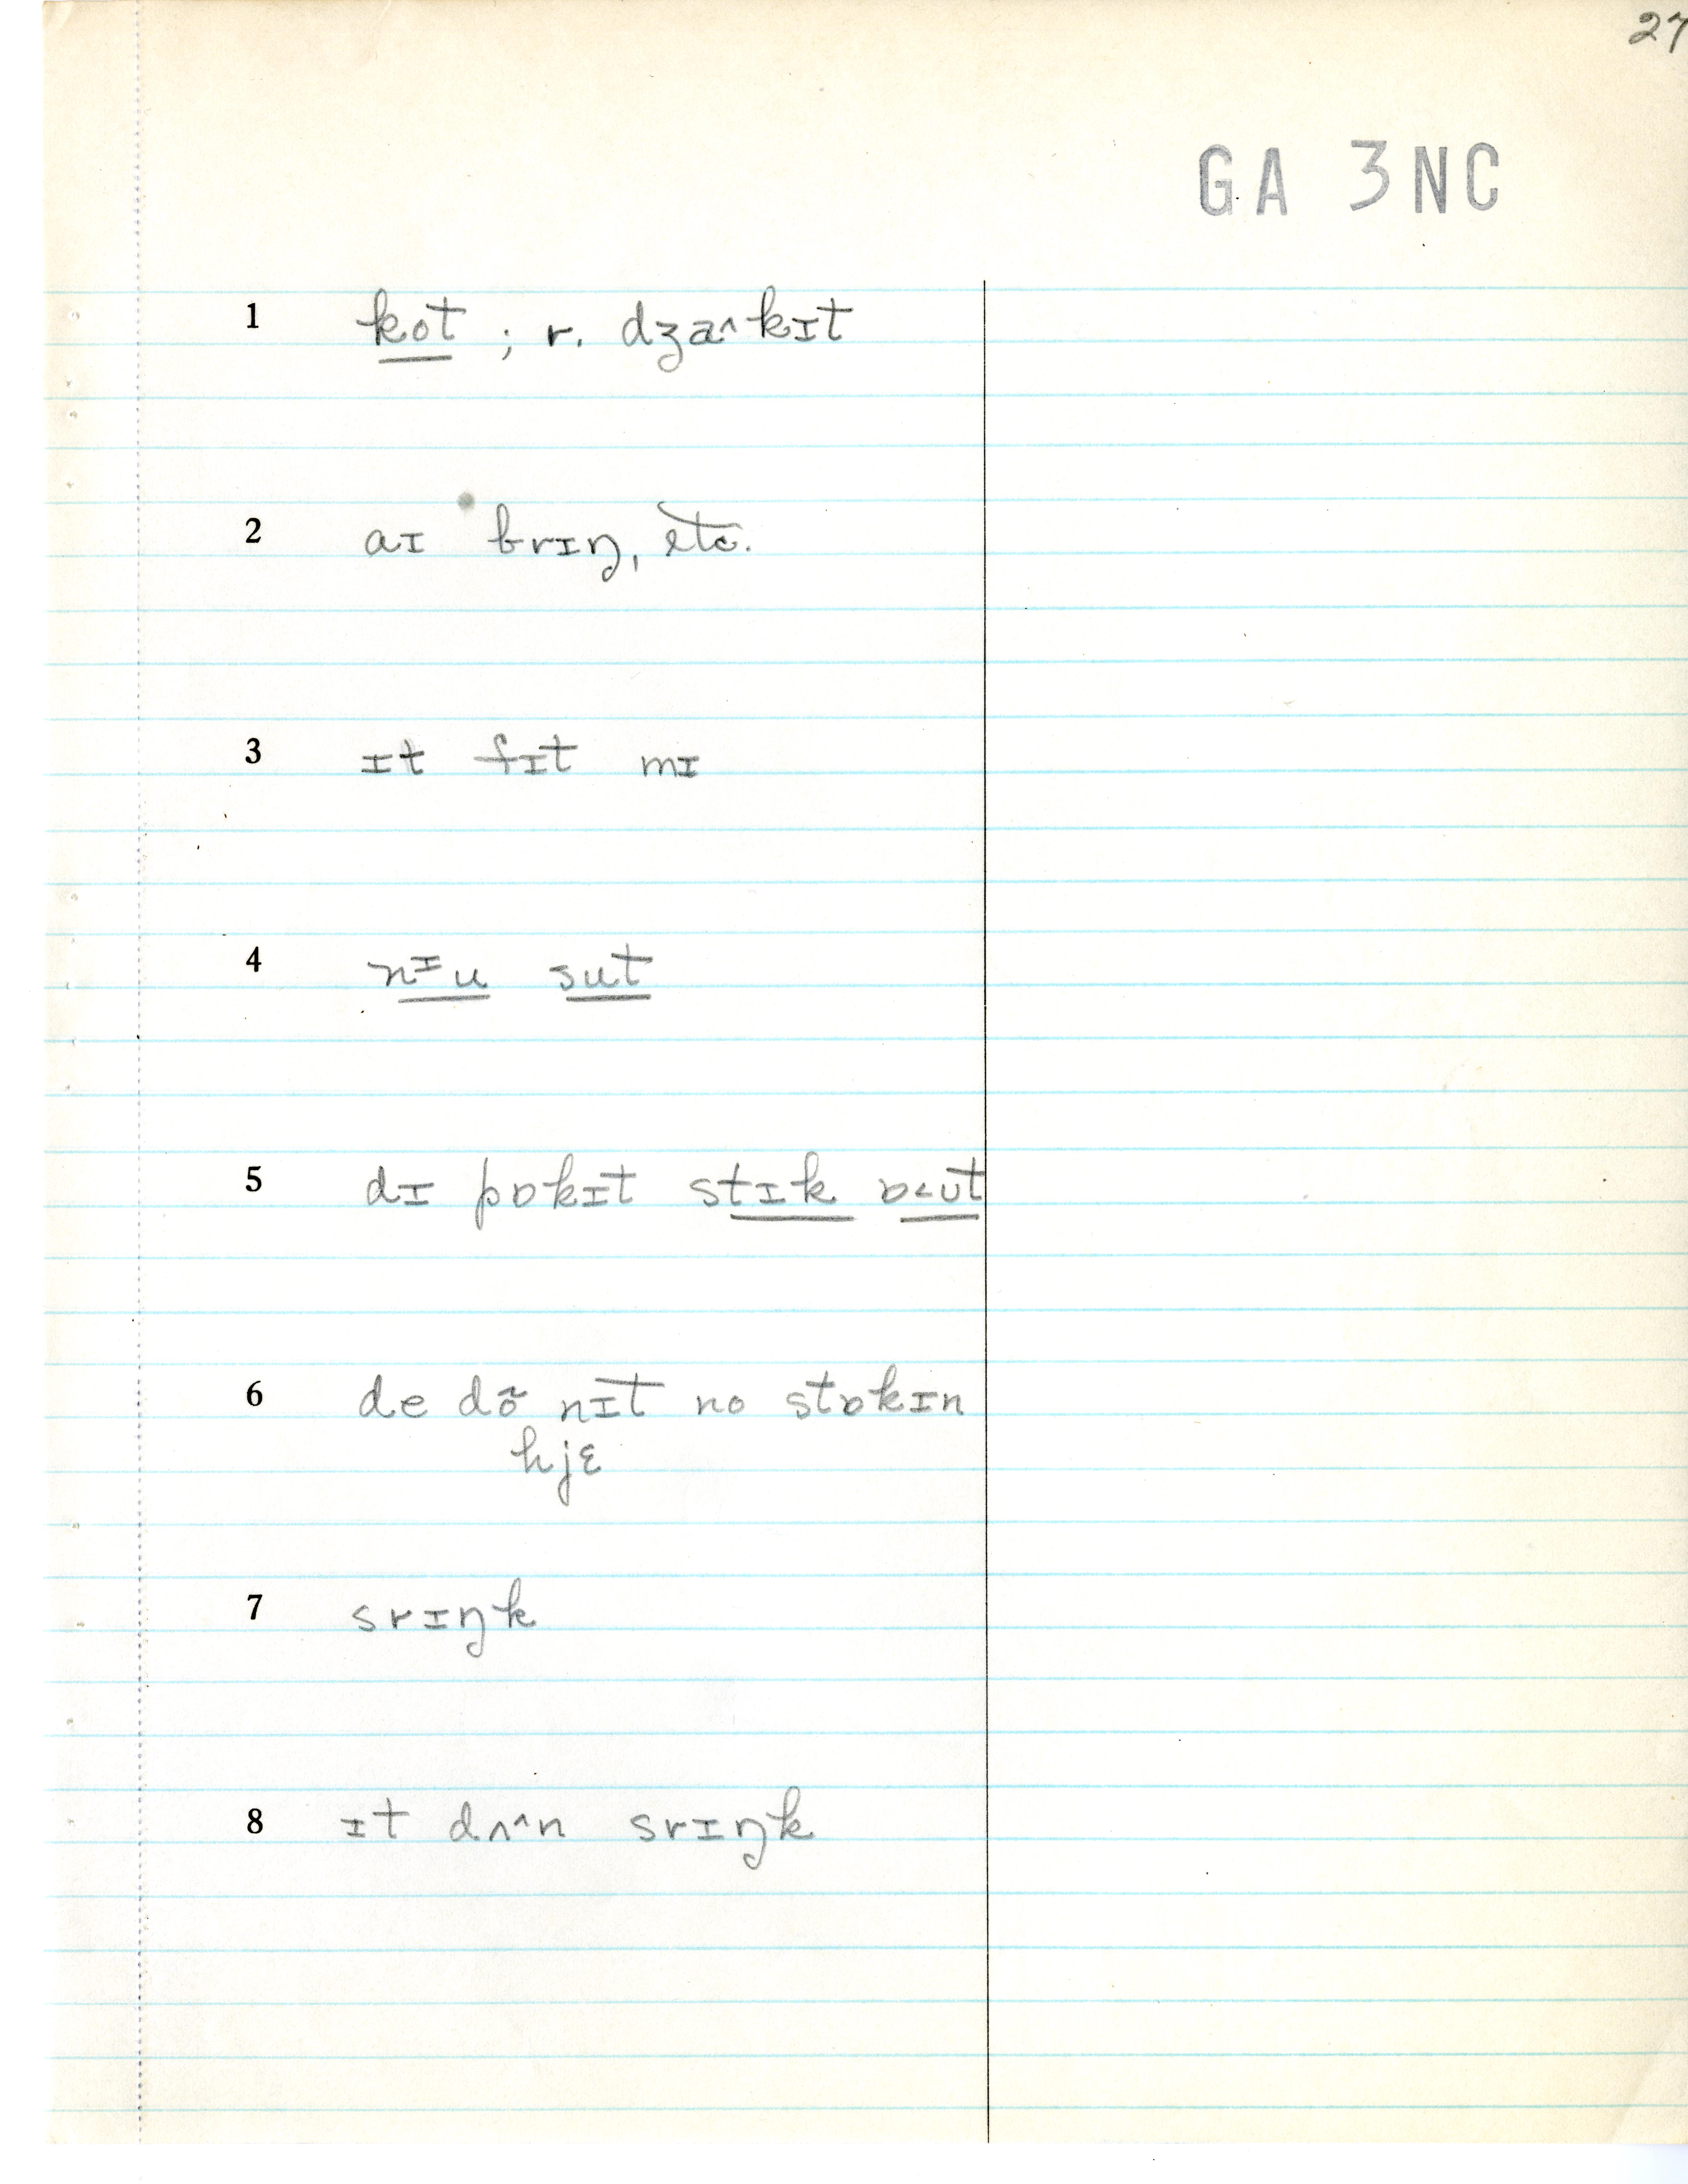 27
GA 3NC
1 kot ; r. dʒa˄kɪt
2 aɪ brɪŋ, etc.
3 ɪt fɪt mɪ
4 nᶦu sut
5 dɪ pɒkɪt stɪk ɒ˂ut
6 de dõ nɪt no stɒkɪn
hjɛ
7 srɪŋk
8 ɪt dʌ˄n srɪŋk